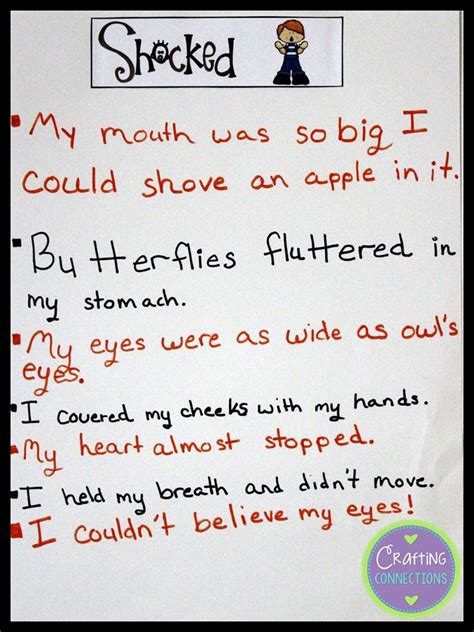 Shocked
▪ My mouth was so big I
could shove an apple in it.
▪ Butterflies fluttered in
my stomach.
▪ My eyes were as wide as owl's
eyes.
▪ I covered my cheeks with my hands.
▪ My heart almost stopped.
▪ I held my breath and didn't move.
▪ I couldn't believe my eyes!
Crafting
CONNECTIONS